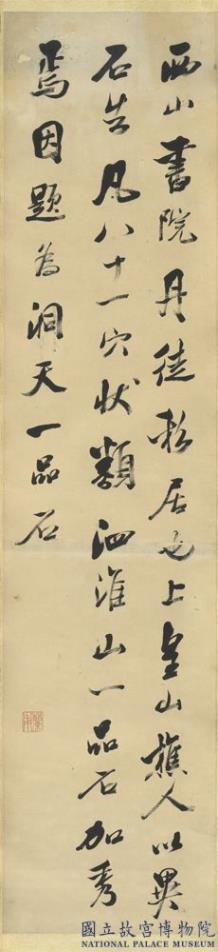 西山書院丹徒私居也上皇山樵人以異
石告凡八十一穴状類泗淮山一品石加秀
焉因題為洞天一品石
國立故宮博物院
NATIONAL PALACE MUSEUM